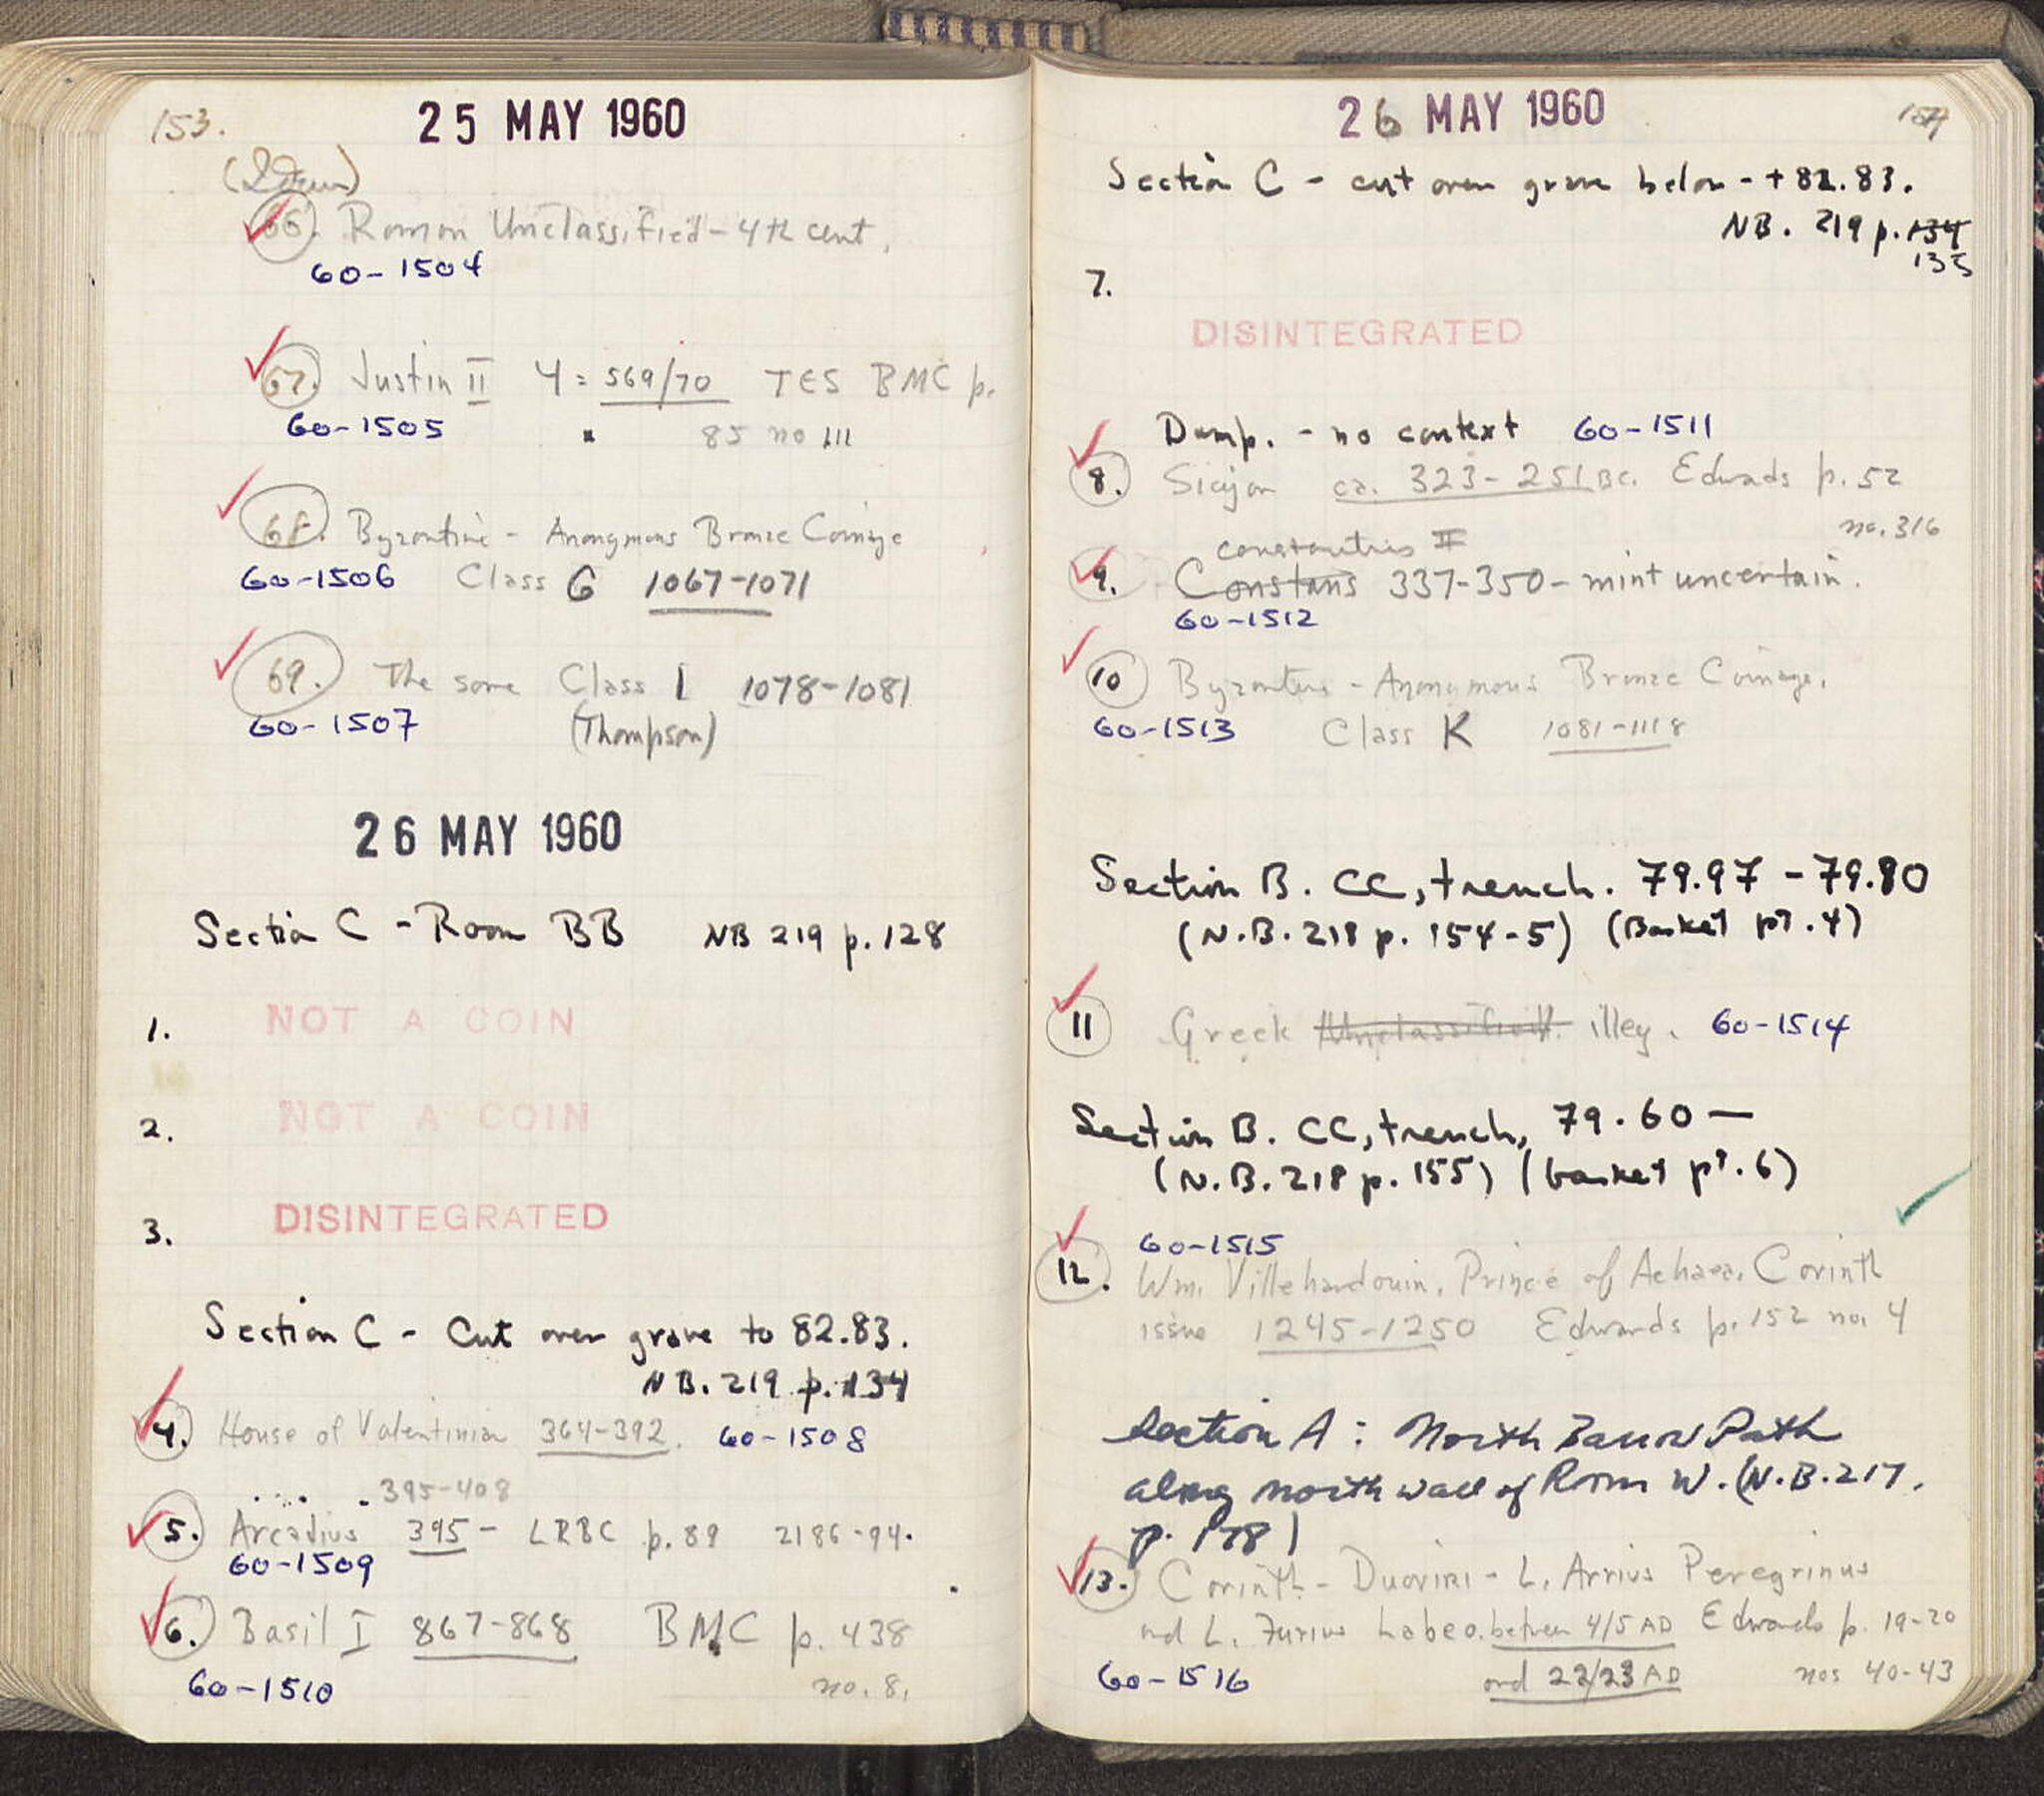 153.
25 MAY 1960
66. Roman Unclassified - 4th cent.
60-1504
67. Justin II 4 = 569/70 TES BMC p.
60-1505 " 85 no 111
68. Byzantine - Anonymous Bronze Coinage
60-1506 Class G 1067-1071
69. The same Class I 1078-1081
60-1507 (Thompson)
26 MAY 1960
Section C - Room BB NB 219 p. 128
1. NOT A COIN
2. NOT A COIN
3. DISINTEGRATED
Section C - Cut over grave to 82.83.
NB. 219 p. 134
4. House of Valentinian 364-392. 60-1508
395-408
5. Arcadius 395- LRBC p. 89 2186-94.
60-1509
6. Basil I 867-868 BMC p. 438
60-1510 no. 8.
26 MAY 1960
154
Section C - cut over grave below - + 82.83.
NB. 219 p. 134
135
7.
DISINTEGRATED
Dump. - no context 60-1511
8. Sicyon ca. 323-251 BC. Edwards p. 52
no. 316
Constantius II
9. Constans 337-350 - mint uncertain.
60-1512
10 Byzantine - Anonymous Bronze Coinage.
60-1513 Class K 1081-1118
Section B. CC, trench. 79.97 - 79.80
(N.B. 218 p. 154-5) (Basket pt. 4)
11 Greek Unclassified illeg. 60-1514
Section B. CC, trench, 79.60 —
(N.B. 218 p. 155) (basket pt. 6)
60-1515
12. Wm. Villehardouin, Prince of Achaea, Corinth
issue 1245-1250 Edwards p. 152 no. 4
Section A: North Barrow Path
along north wall of Room W. (N.B. 217,
p. 178)
13. Corinth - Duoviri - L. Arrius Peregrinus
and L. Furius Labeo. between 4/5 AD Edwards p. 19-20
60-1516 and 22/23 AD nos 40-43